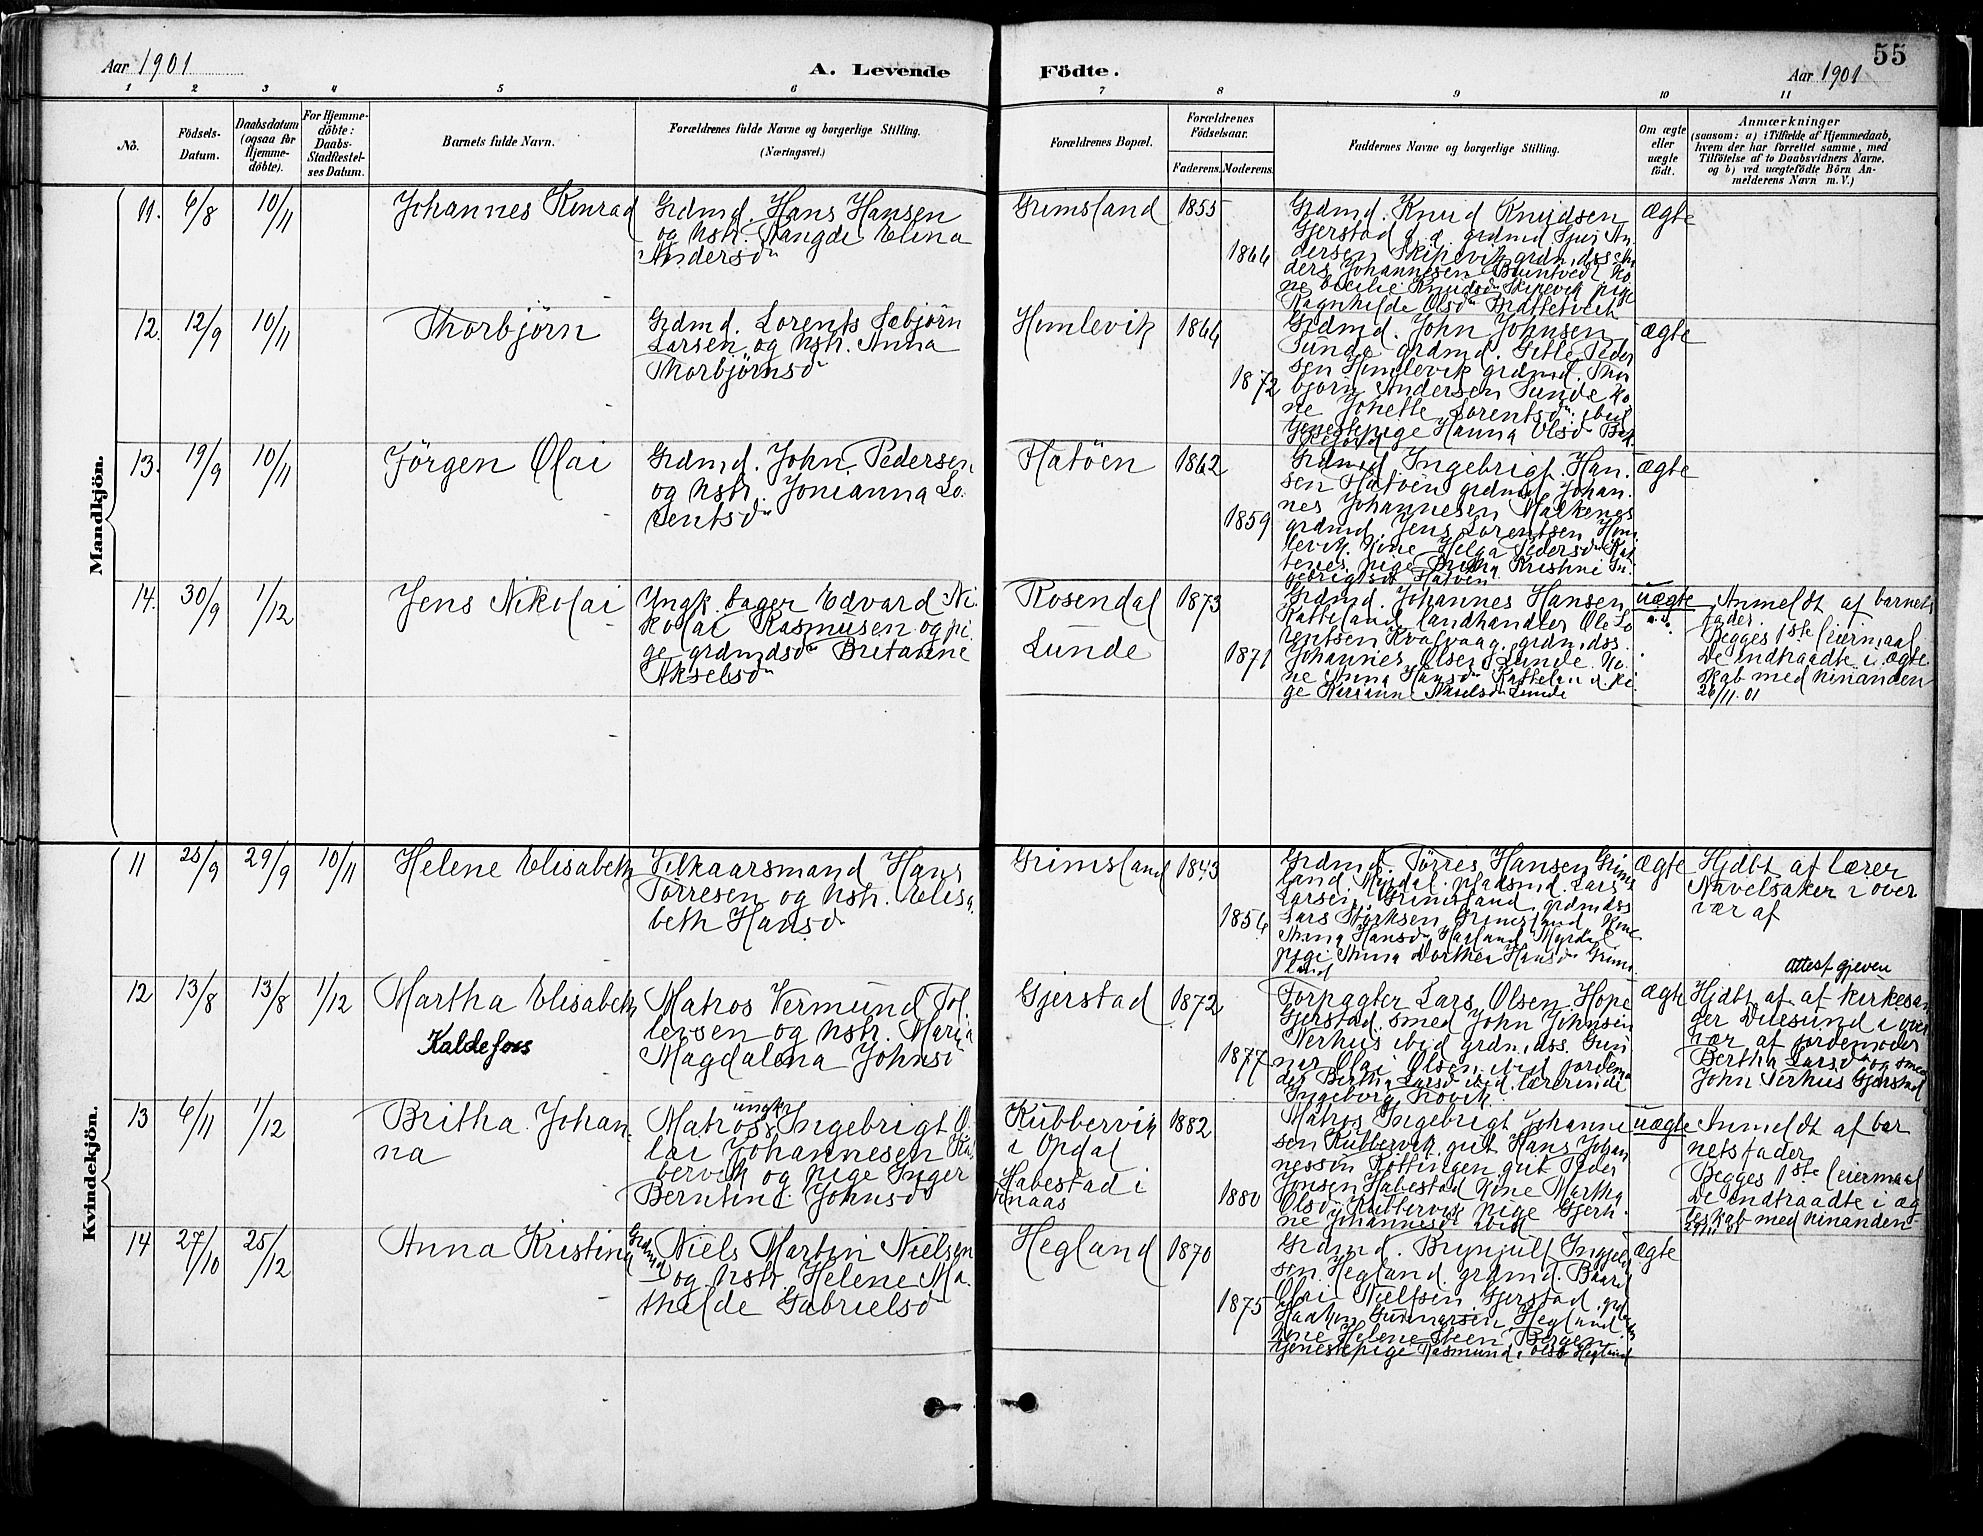 55
Aar 1901
A. Levende
Födte.
Aar 1901
1 2 3 4 5 6 7 8 9 10 11
No.
Födsels-
Datum.
Daabsdatum
(ogsaa for
Hjemme-
döbte).
For Hjemme-
döbte:
Daabs-
Stadfæstel-
ses Datum.
Barnets fulde Navn.
Forældrenes fulde Navne og borgerlige Stilling.
(Næringsvei.)
Forældrenes Bopæl.
Forældrenes
Födselsaar.
Faderens.
Moderens.
Faddernes Navne og borgerlige Stilling.
Om ægte
eller
uægte
födt.
Anmærkninger
(saasom: a) i Tilfælde af Hjemmedaab,
hvem der har forrettet samme, med
Tilföielse af to Daabsvidners Navne.
og b) ved uægtefödte Börn An-
melderens Navn m. V.)
Mandkjön.
11. 6/8 10/11
Johannes Konrad
Grdmd. Hans Hansen
og hstr. Rangdi Elina
Andersdr
Grimsland
1855
1864
Grdmd. Knud Knudsen
Gjerstad
Ragnhilde Olsdr Brattetveit
ægte
12. 12/9 10/11
Thorbjörn
Grdmd. Lorents Sebjörn
Larsen og hstr. Anna
Thorbjörnsd
Humlevik
1864
1872
Grdmd. John Johnsen
Sunde grdmd. Gitle Peder
sen Humlevik grdmd. Thor
björn Andersen Sunde ko
ne Jonette Lorentsdr ibid
tjenestepige Hanna Olsd
ægte
13. 19/9 10/11
Jörgen Olai
Grdmd. John Pedersen
og hstr. Jonianna Lo-
rentsdr
Hatöen
1862
1859
Grdmd Ingebrigt Han-
sen Hatöen grdmd Johan-
nes Johannesen Malkenes
grdmd. Jens Lorentsen Hum
levik. Kone Helga Pedersdr
pige Kristine In
gebrigtsd Hatöen
ægte
14. 30/9 1/12
Jens Nikolai
Ungk. bager Edvard Ni-
kolai Rasmusen og pi-
ge grdmdsdr Britanne
Akselsdr
Rosendal
Lunde
1873
1871
Grdmd. Johannes Hansen
Katteland landhandler Ole Lo
rentsen Kvalvaag. grdmdss.
Johannes Olsen Lunde. Ko
ne Anna Hansdr Katteland pi
ge Karianne Akselsdr Lunde
uægte
Anmeldt af barnets
fader.
Begges 1ste leiermaal
De indtraadte i ægte
skab med hinanden
Kvindekjön.
11 29/9 10/11
Helene Elisabeth
Vilkaarsmand Hans
Törresen og hstr. Elisa
beth Hansd
Grimsland
1843
Grdmd. Törres Hansen Grims
land. Myrdal. pladsmd. Lars
Larsen Grimsland grdmdss
Lars Grimsland kone
Anna Hansdr Myrdal
pige Anna Dorthea Hansdr Grims
land
ægte
Hjdbt af lærer
Nävelsaker i over
vær af
12 13/8 13/8 1/12
Martha Elisabeth
Kaldefoss
Matros Vermund Tol-
levsen og hstr. Maria
Magdalena Johnsd
Gjerstad
1872
1877
Forpagter Lars Olsen Hope
Gjerstad. smed John Johnsen
Nerhus ibid grdmdss. Gun
nar Olai Olsen ibid jordemo
der Bertha Larsd ibid. lærerinde
Ingeborg
ægte
attest gjeven
Hjdbt af af kirkesan
ger Duesund i over
vær af jordemoder
Bertha Larsdr og smed
John Nerhus Gjerstad
13 6/11 1/12
Britha Johan-
na
Matros ungk. Ingebrigt O-
lai Johannesen Kub
bervik og pige Inger
Berntine Johnsd
Kubbervik
i Opdal
Habestad i
Fitnaas
1882
1880
Matros Ingebrigt Johanne
sen Kubbervik gut Hans Johan
nessen Rottingen gut Peder
Jonsen Habestad Kone Martha
Olsdr Kubbervik pige Gjerti
ne Johannesd ibid
uægte
Anmeldt af bar
netsfader
Begges 1ste leiermaal
De indtraadte i æg
teskab med hinanden
14 27/10 25/12
Anna Kristina
Grdmd Niels Martin Nielsen
og hstr Helene Ma-
thilde Gabrielsd
Hegland
1870
1875
Grdmd. Brynjulf
sen Hegland. grdmd. Baard
Olai Nielsen Gjerstad.
Haakon Gunnarsen Hegland
kone Helene Steen Bergen
tjenestepige Rasmund. Olsd Hegland
ægte